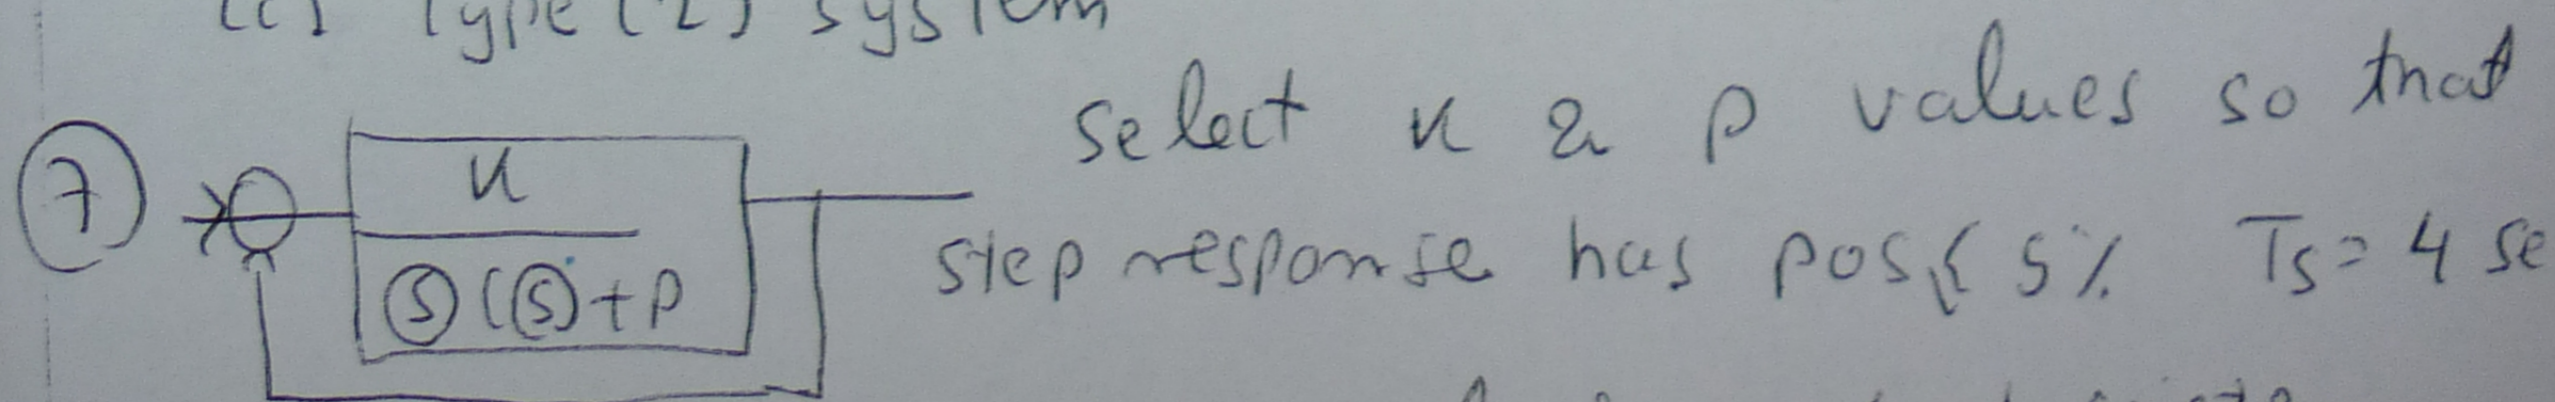 (c) Type (2) system
select K & p values so that
7
K
s(s+p
step response has pos ≤ 5% Ts = 4 se